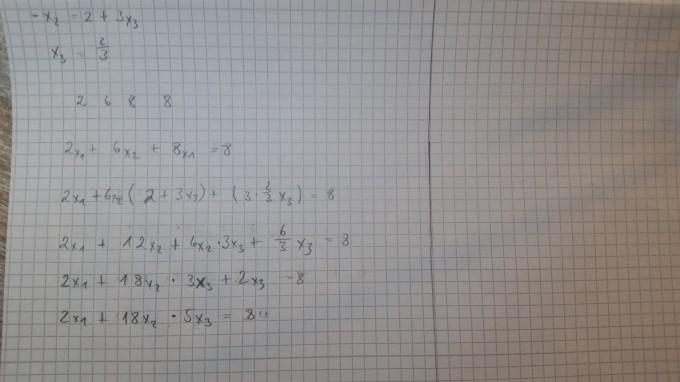 -x₂ = 2 + 3x₃
x₃ = 2/3
2 6 8 8
2x₁ + 6x₂ + 8x₁ = 8
2x₁ + 6x₂ ( 2 + 3x₃) + ( 3 · 2/3 x₃ ) = 8
2x₁ + 12x₂ + 6x₂ · 3x₃ + 6/3 x₃ = 8
2x₁ + 18x₂ · 3x₃ + 2x₃ = 8
2x₁ + 18x₂ · 5x₃ = 8